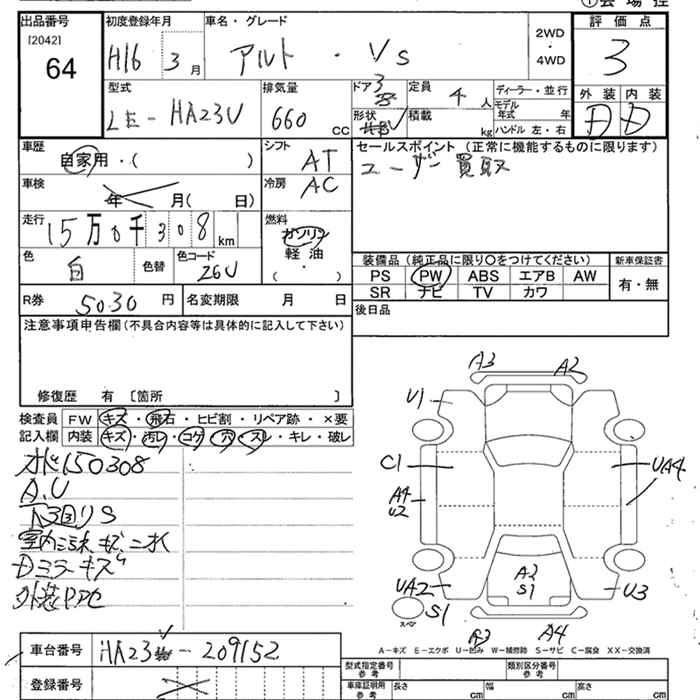 ①会場控
出品番号 初度登録年月 車名・グレード 2WD・4WD 評価点
[2042]
64 H16 3月 アルト・Vs 3
型式 排気量 ドア 定員 ディーラー・並行 外装 内装
LE-HA23V 660cc 3 4人 モデル年式 年 D D
形状 V 積載 kg ハンドル 左・右
車歴 シフト セールスポイント (正常に機能するものに限ります)
自家用・( ) AT ユーザー買取
車検 年 月( 日) 冷房 AC
走行 15万0千308km 燃料 ガソリン
軽油
( ・ )
色 白 色替 色コード 26U
装備品 (純正品に限り○をつけてください) 新車保証書
PS PW ABS エアB AW 有・無
SR ナビ TV カワ
R券 5030円 名変期限 月 日
後日品
注意事項申告欄(不具合内容等は具体的に記入して下さい)
修復歴 有 〔箇所 〕
検査員 FW キズ・飛石・ヒビ割・リペア跡・×要
記入欄 内装 キズ・汚レ・コゲ・穴・スレ・キレ・破レ
メーター150308
A.U
下回りS
Dミラーキズ
A3 A2
U1
C1 UA4
A4
U2
A2
S1
UA2 U3
S1
スペア
A3 A4
A-キズ E-エクボ U-凹み W-補修跡 S-サビ C-腐食 XX-交換済
車台番号 HA23V-209152
登録番号
型式指定番号 参考 類別区分番号 参考
車庫証明用 参考 長さ cm 幅 cm 高さ cm